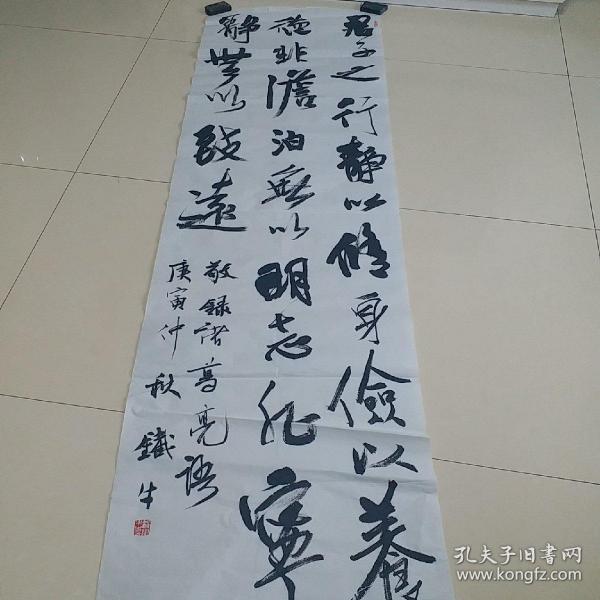 君子之行静以修身儉以養
德非澹泊無以明志非寧
靜無以致遠
敬録诸葛亮语
庚寅仲秋 鐵牛
孔夫子旧书网
www.kongfz.com